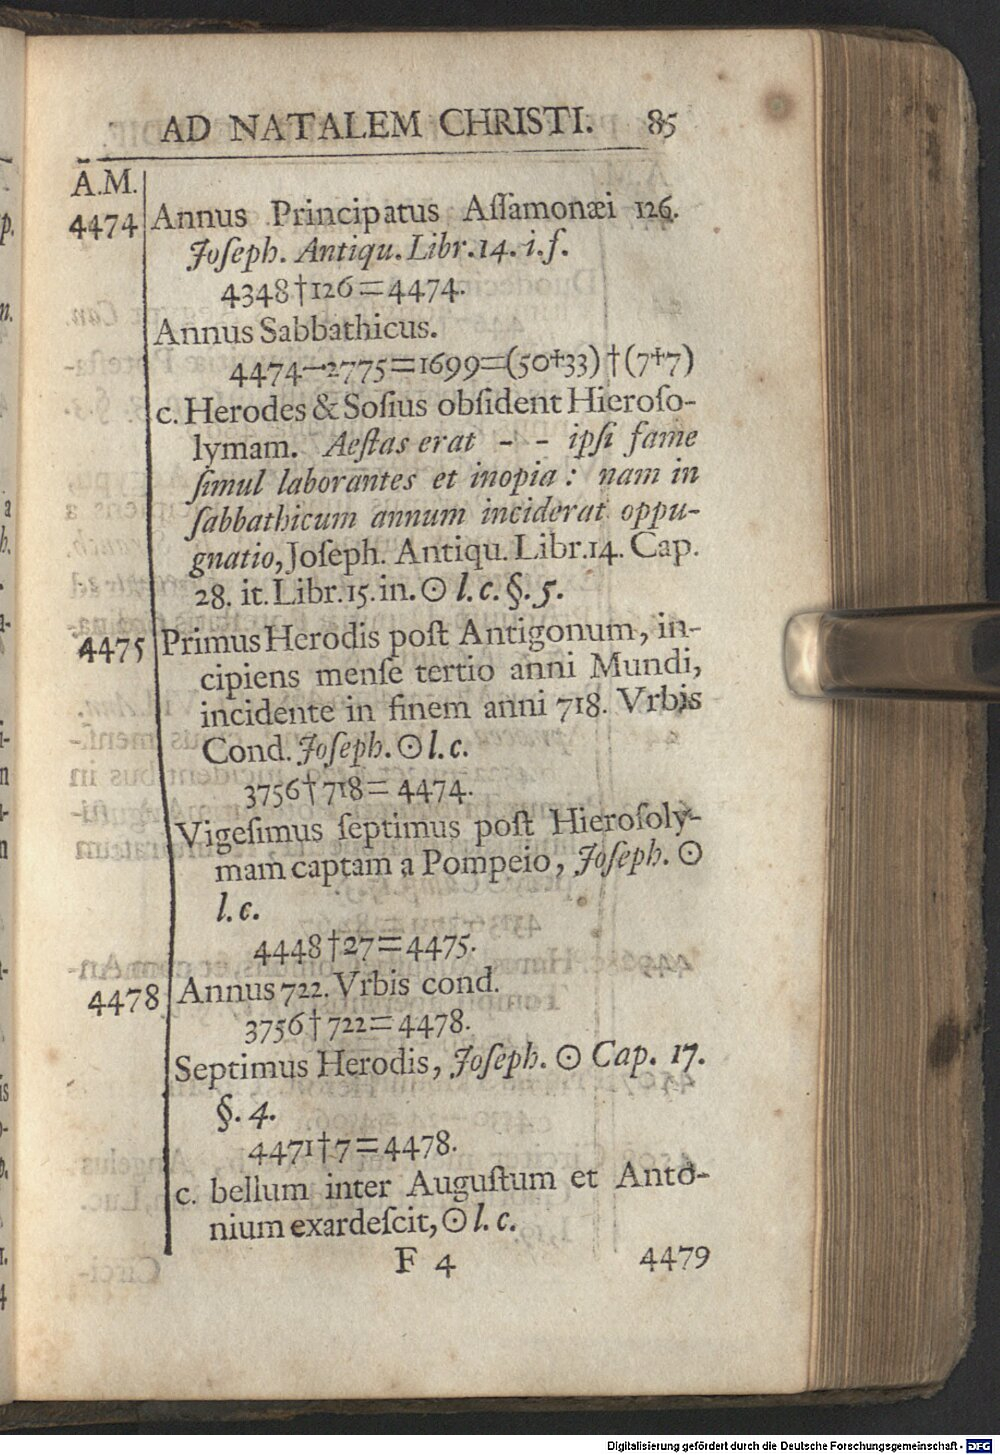 AD NATALEM CHRISTI. 85
A.M.
4474 Annus Principatus Aſſamonæi 126.
Joſeph. Antiqu. Libr. 14. i. f.
4348†126=4474.
Annus Sabbathicus.
4474—2775=1699=(50†33)†(7†7)
c. Herodes & Soſius obſident Hieroſo-
lymam. Aeſtas erat - - ipſi fame
ſimul laborantes et inopia: nam in
ſabbathicum annum inciderat oppu-
gnatio, Joſeph. Antiqu. Libr. 14. Cap.
28. it. Libr. 15. in. ☉ l. c. §. 5.
4475 Primus Herodis poſt Antigonum, in-
cipiens menſe tertio anni Mundi,
incidente in finem anni 718. Vrbis
Cond. Joſeph. ☉ l. c.
3756†718= 4474.
Vigeſimus ſeptimus poſt Hieroſoly-
mam captam a Pompeio, Joſeph. ☉
l. c.
4448†27=4475.
4478 Annus 722. Vrbis cond.
3756†722=4478.
Septimus Herodis, Joſeph. ☉ Cap. 17.
§. 4.
4471†7=4478.
c. bellum inter Auguſtum et Anto-
nium exardeſcit, ☉ l. c.
F 4 4479
Digitalisierung gefördert durch die Deutsche Forschungsgemeinschaft - DFG